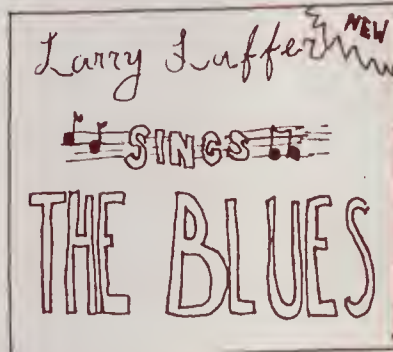 Larry Laffer
NEW
SINGS
THE BLUES